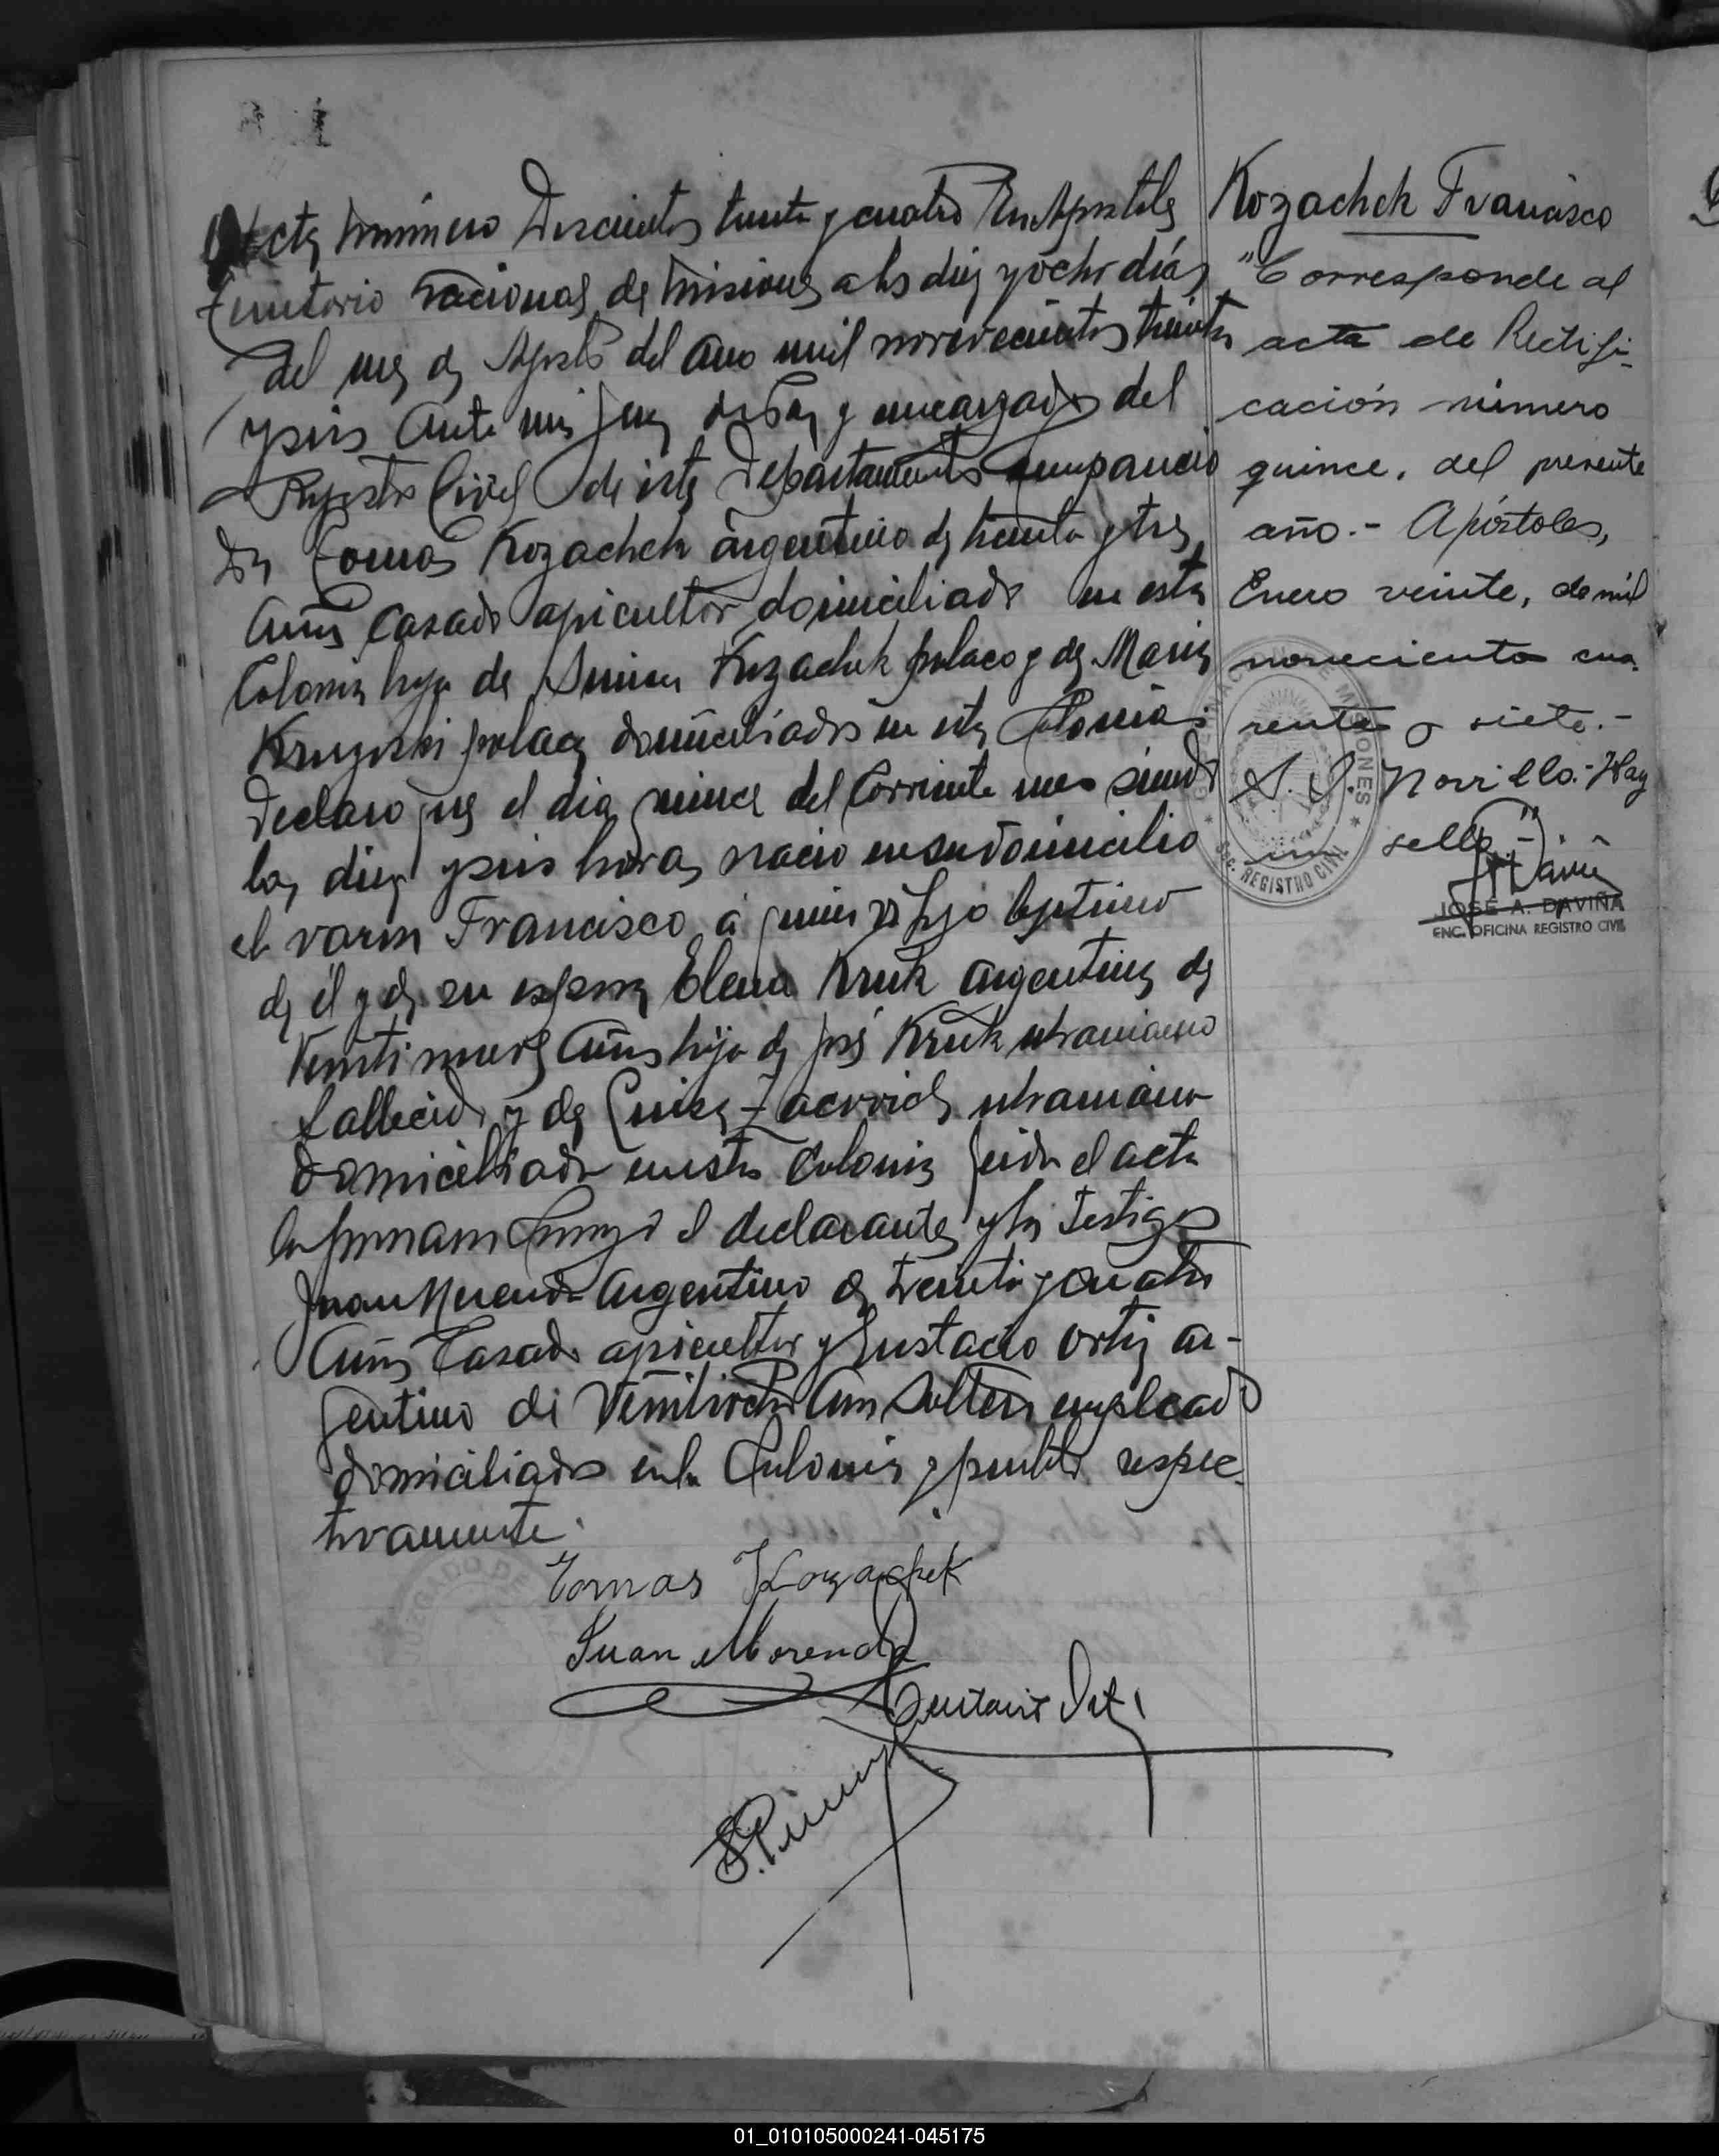 Acta número Doscientos treinta y cuatro En Apostoles
territorio nacional de Misiones a los diez y ocho días
del mes de Agosto del año mil novecientos treinta
y seis Ante mi Juez de Paz y encargado del
Registro Civil de este Departamento compareció
Dn Tomas Kozachek argentino de treinta y tres
años casado apicultor domiciliado en esta
Colonia hijo de Kozachek polaco y de Maria
polaca domiciliados en esta Colonia
declaro que el dia quince del corriente mes siendo
las diez y seis horas nacio en su domicilio
el varon Francisco á quien vi hijo legitimo
de él y de su esposa Elena Kruk argentina de
Veintinueve años hija de José Kruk ukraniano
fallecido y de ukraniana
domiciliada en esta Colonia leida el acta
la firmaron conmigo el declarante y los testigos
Juan Merenda Argentino de treinta y cuatro
Años Casado apicultor y Eustacio Ortiz ar-
gentino de Veintiocho años soltero empleado
domiciliados en la Colonia y pueblo respec-
tivamente.
Tomas Kozachek
Juan Merenda
Eustacio Ortiz
Kozachek Francisco
"Corresponde al
acta de Rectifi-
cación número
quince, del presente
año.- Apóstoles,
Enero veinte, de mil
novecientos cua-
renta y siete.-
Norrillo.- Hay
un sello".-
JOSE A. DAVIÑA
ENC. OFICINA REGISTRO CIVIL
MISIONES
REGISTRO CIVIL
JUZGADO DE
01_010105000241-045175